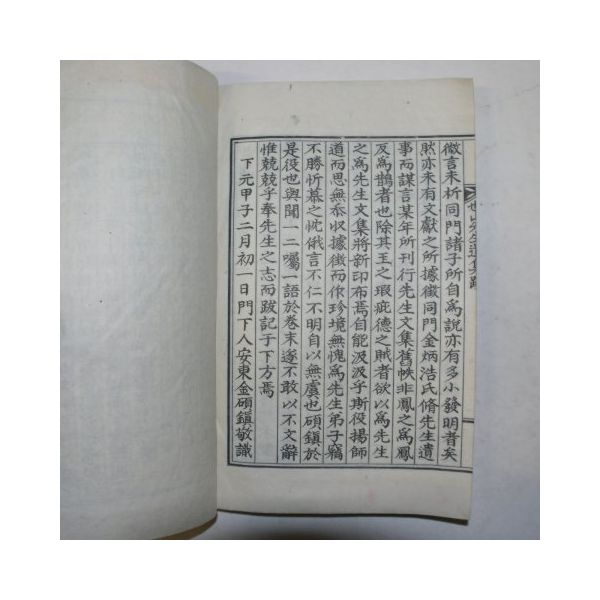 微言未析同門諸子所自爲說亦有多小發明者矣
然亦未有文獻之所據徵同門金炳浩氏脩先生遺
事而謀言某年所刊行先生文集舊帙非鳳之爲鳳
反爲鵲者也除其玉之瑕疵德之賊者欲以爲先生
之爲先生文集將新印布焉自能汲汲乎斯役揚師
道而思無忝収據徵而作珍境無愧爲先生弟子竊
不勝忻慕之忱俄言不仁不明自以無虞也碩鎭於
是役也與聞一二囑一語於卷末遂不敢以不文辭
惟兢兢乎奉先生之志而跋記于下方焉
下元甲子二月初一日門下人安東金碩鎭敬識
山先生遺集跋